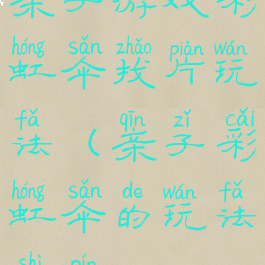 亲子游戏彩
hóng sǎn zhǎo piàn wán
虹伞找片玩
fǎ qīn zǐ cǎi
法（亲子彩
hóng sǎn de wán fǎ
虹伞的玩法
shì pín